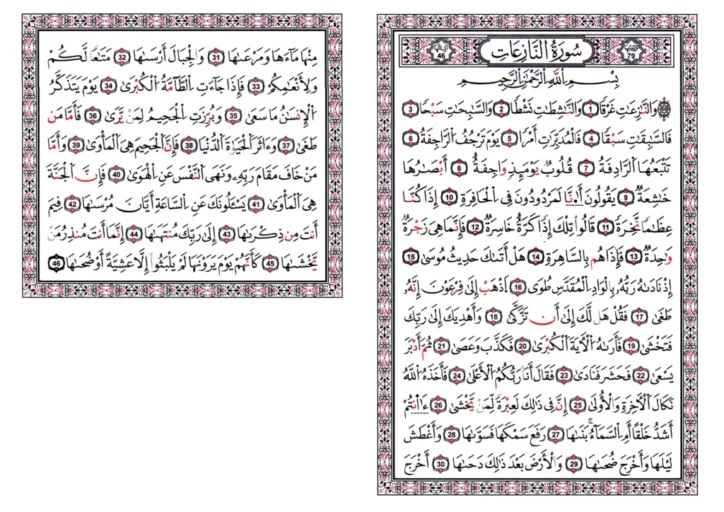 سُورَةُ النَّازِعَاتِ
بِسْمِ اللَّهِ الرَّحْمَٰنِ الرَّحِيمِ
وَالنَّازِعَاتِ غَرْقًا 1 وَالنَّاشِطَاتِ نَشْطًا 2 وَالسَّابِحَاتِ سَبْحًا 3
فَالسَّابِقَاتِ سَبْقًا 4 فَالْمُدَبِّرَاتِ أَمْرًا 5 يَوْمَ تَرْجُفُ الرَّاجِفَةُ 6
تَتْبَعُهَا الرَّادِفَةُ 7 قُلُوبٌ يَوْمَئِذٍ وَاجِفَةٌ 8 أَبْصَارُهَا
خَاشِعَةٌ 9 يَقُولُونَ أَءِنَّا لَمَرْدُودُونَ فِي الْحَافِرَةِ 10 إِذَا كُنَّا
عِظَامًا نَّخِرَةً 11 قَالُوا تِلْكَ إِذًا كَرَّةٌ خَاسِرَةٌ 12 فَإِنَّمَا هِيَ زَجْرَةٌ
وَاحِدَةٌ 13 فَإِذَا هُم بِالسَّاهِرَةِ 14 هَلْ أَتَاكَ حَدِيثُ مُوسَىٰ 15
إِذْ نَادَاهُ رَبُّهُ بِالْوَادِ الْمُقَدَّسِ طُوًى 16 اذْهَبْ إِلَىٰ فِرْعَوْنَ إِنَّهُ
طَغَىٰ 17 فَقُلْ هَل لَّكَ إِلَىٰ أَن تَزَكَّىٰ 18 وَأَهْدِيَكَ إِلَىٰ رَبِّكَ
فَتَخْشَىٰ 19 فَأَرَاهُ الْآيَةَ الْكُبْرَىٰ 20 فَكَذَّبَ وَعَصَىٰ 21 ثُمَّ أَدْبَرَ
يَسْعَىٰ 22 فَحَشَرَ فَنَادَىٰ 23 فَقَالَ أَنَا رَبُّكُمُ الْأَعْلَىٰ 24 فَأَخَذَهُ اللَّهُ
نَكَالَ الْآخِرَةِ وَالْأُولَىٰ 25 إِنَّ فِي ذَٰلِكَ لَعِبْرَةً لِّمَن يَخْشَىٰ 26 ءَأَنتُمْ
أَشَدُّ خَلْقًا أَمِ السَّمَاءُ بَنَاهَا 27 رَفَعَ سَمْكَهَا فَسَوَّاهَا 28 وَأَغْطَشَ
لَيْلَهَا وَأَخْرَجَ ضُحَاهَا 29 وَالْأَرْضَ بَعْدَ ذَٰلِكَ دَحَاهَا 30 أَخْرَجَ
مِنْهَا مَاءَهَا وَمَرْعَاهَا 31 وَالْجِبَالَ أَرْسَاهَا 32 مَتَاعًا لَّكُمْ
وَلِأَنْعَامِكُمْ 33 فَإِذَا جَاءَتِ الطَّامَّةُ الْكُبْرَىٰ 34 يَوْمَ يَتَذَكَّرُ
الْإِنسَانُ مَا سَعَىٰ 35 وَبُرِّزَتِ الْجَحِيمُ لِمَن يَرَىٰ 36 فَأَمَّا مَن
طَغَىٰ 37 وَءَاثَرَ الْحَيَاةَ الدُّنْيَا 38 فَإِنَّ الْجَحِيمَ هِيَ الْمَأْوَىٰ 39 وَأَمَّا
مَنْ خَافَ مَقَامَ رَبِّهِ وَنَهَى النَّفْسَ عَنِ الْهَوَىٰ 40 فَإِنَّ الْجَنَّةَ
هِيَ الْمَأْوَىٰ 41 يَسْأَلُونَكَ عَنِ السَّاعَةِ أَيَّانَ مُرْسَاهَا 42 فِيمَ
أَنتَ مِن ذِكْرَاهَا 43 إِلَىٰ رَبِّكَ مُنتَهَاهَا 44 إِنَّمَا أَنتَ مُنذِرُ مَن
يَخْشَاهَا 45 كَأَنَّهُمْ يَوْمَ يَرَوْنَهَا لَمْ يَلْبَثُوا إِلَّا عَشِيَّةً أَوْ ضُحَاهَا 46